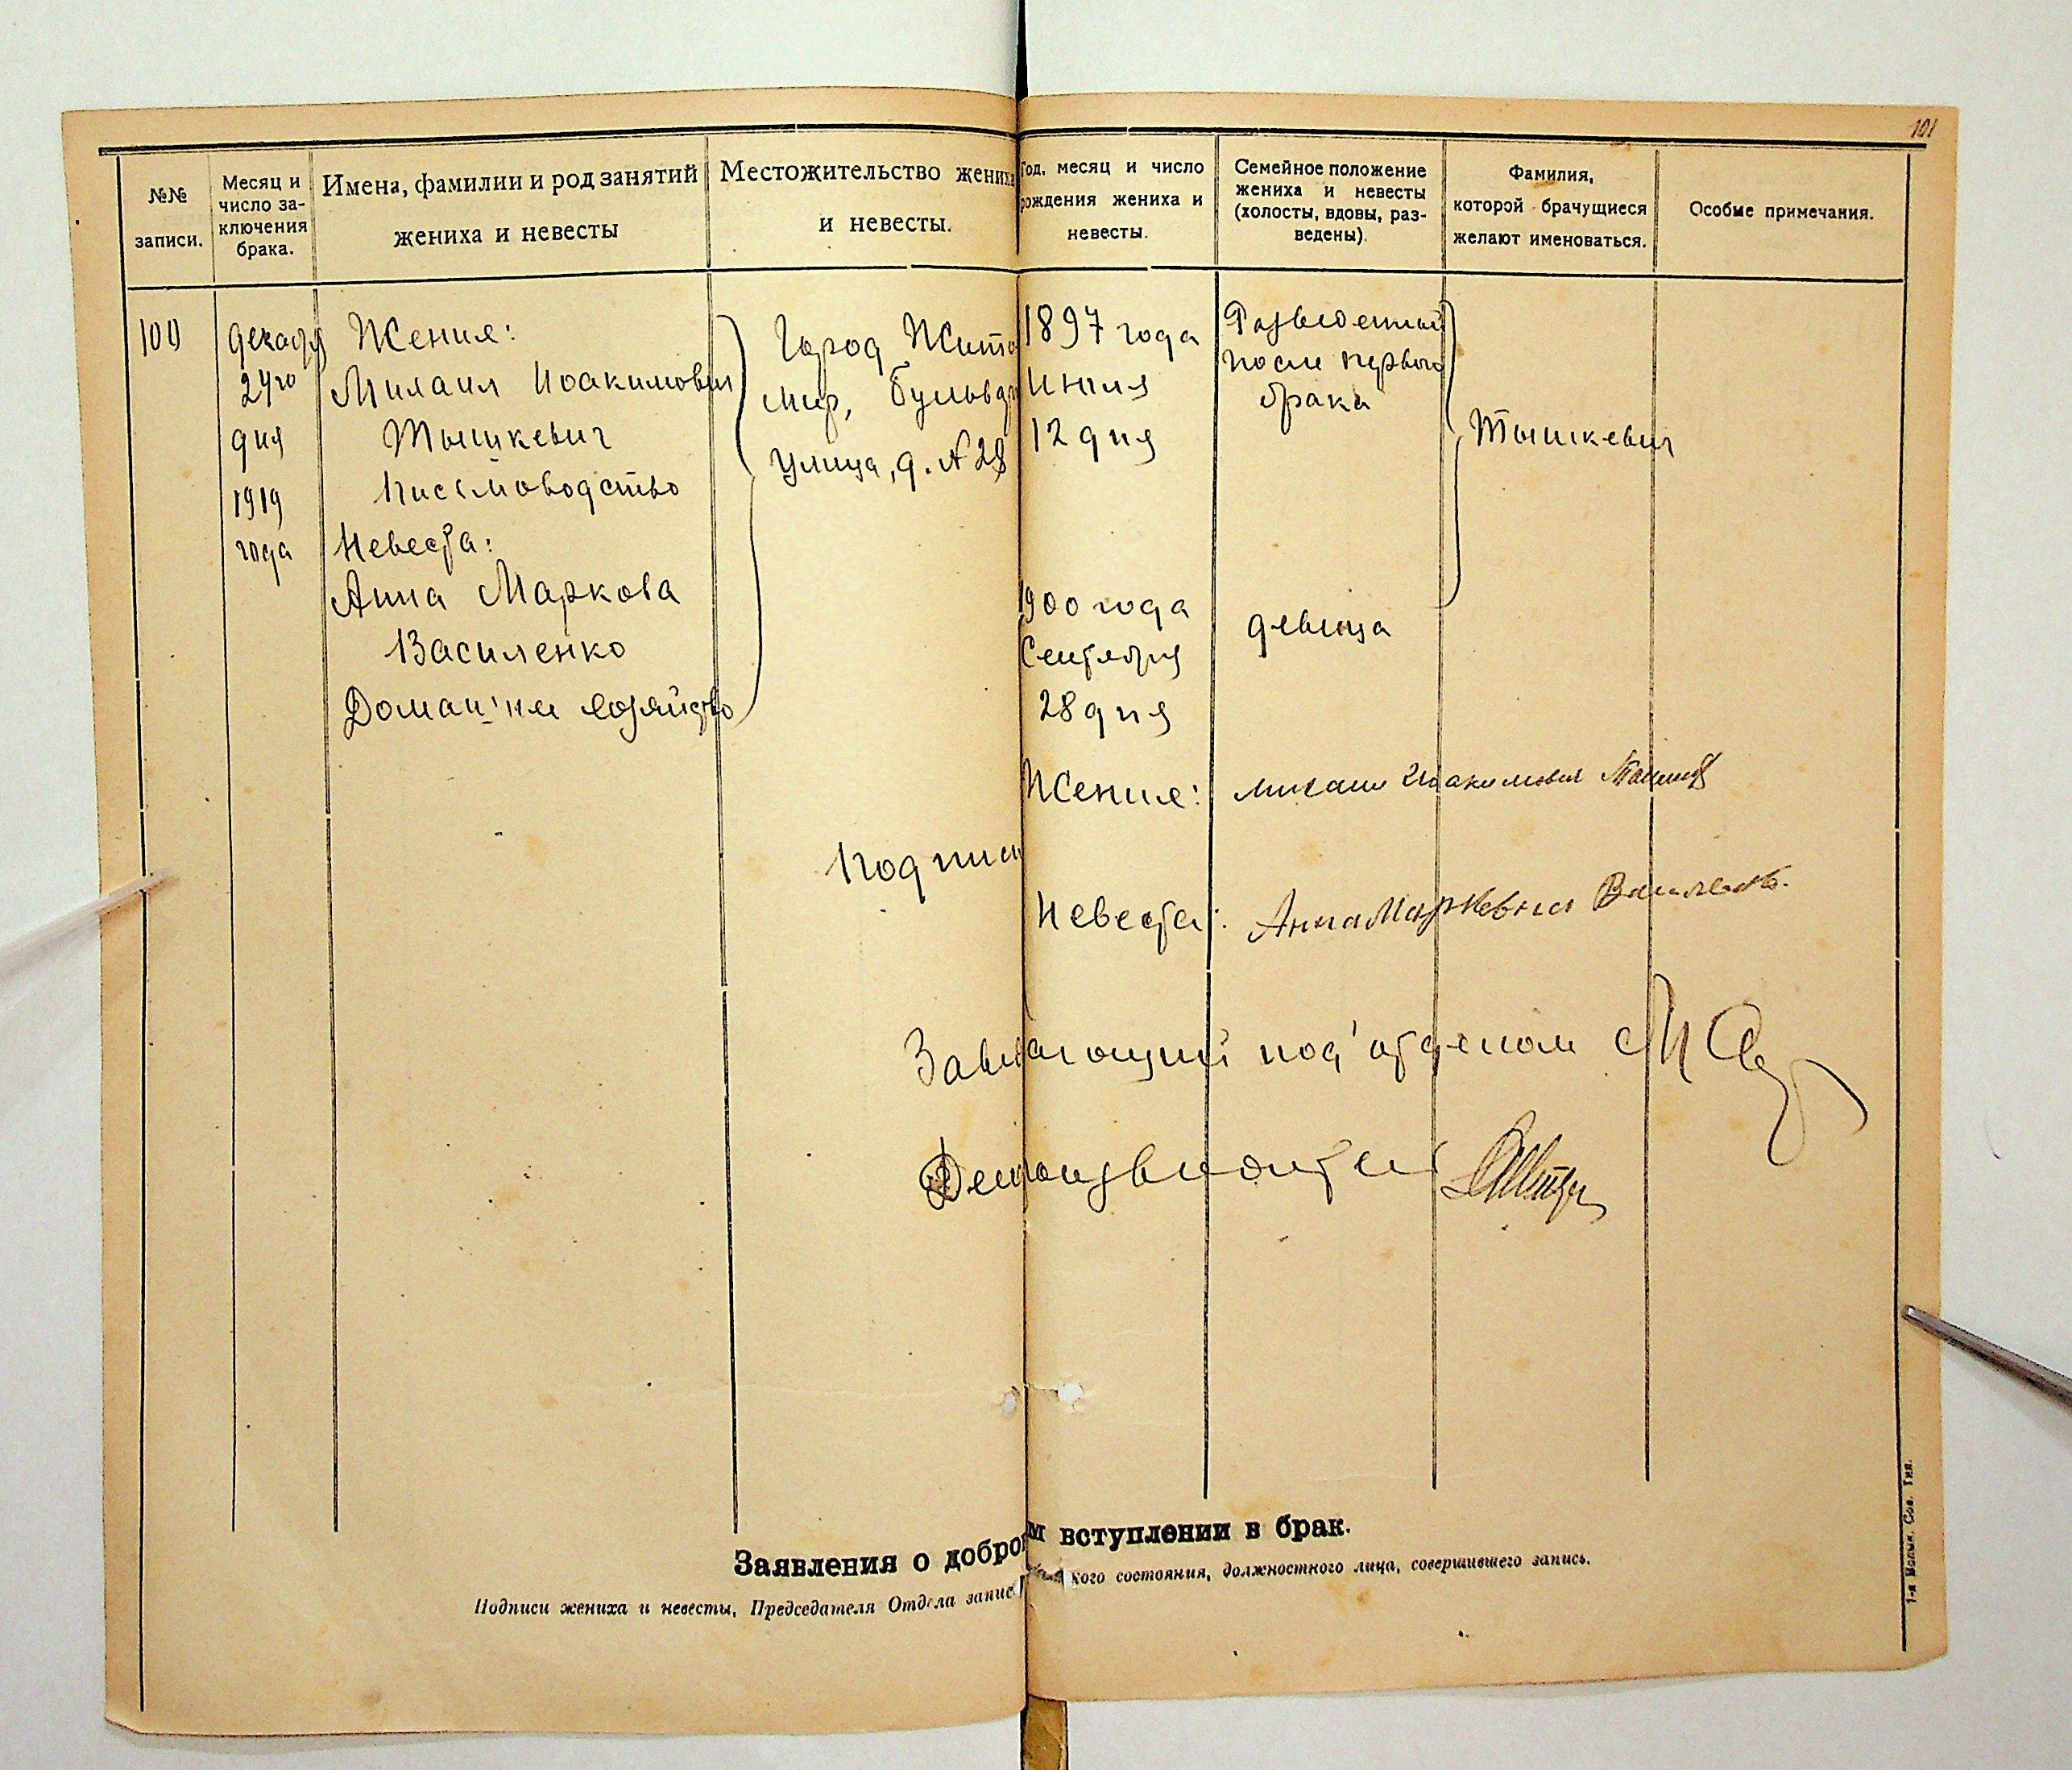 101
№№
записи.
Месяц и
число за-
ключения
брака.
Имена, фамилии и род занятий
жениха и невесты
Местожительство жениха
и невесты.
Год, месяц и число
рождения жениха и
невесты.
Семейное положение
жениха и невесты
(холосты, вдовы, раз-
ведены).
Фамилия,
которой брачущиеся
желают именоваться.
Особые примечания.
100
Декабря
24го
дня
1919
года
Жених:
Михаил Иоакимович
Тышкевич
Письмоводство
Невеста:
Анна Маркова
Василенко
Домашнее хозяйство
Город Жито
мир, Бульварн
улица, д. № 28
1897 года
Июля
12 дня
1900 года
Сентября
28 дня
Разведенный
после первого
брака
девица
Тышкевич
Подписи
Жених: Михаил Иоакимович
Невеста: Анна Маркевна Василенко.
Заведующий под'отделом
Делопроизводитель
Заявления о добро м вступлении в брак.
Подписи жениха и невесты, Председателя Отдела запис кого состояния, должностного лица, совершившего запись.
1-я Волын. Сов. Тип.